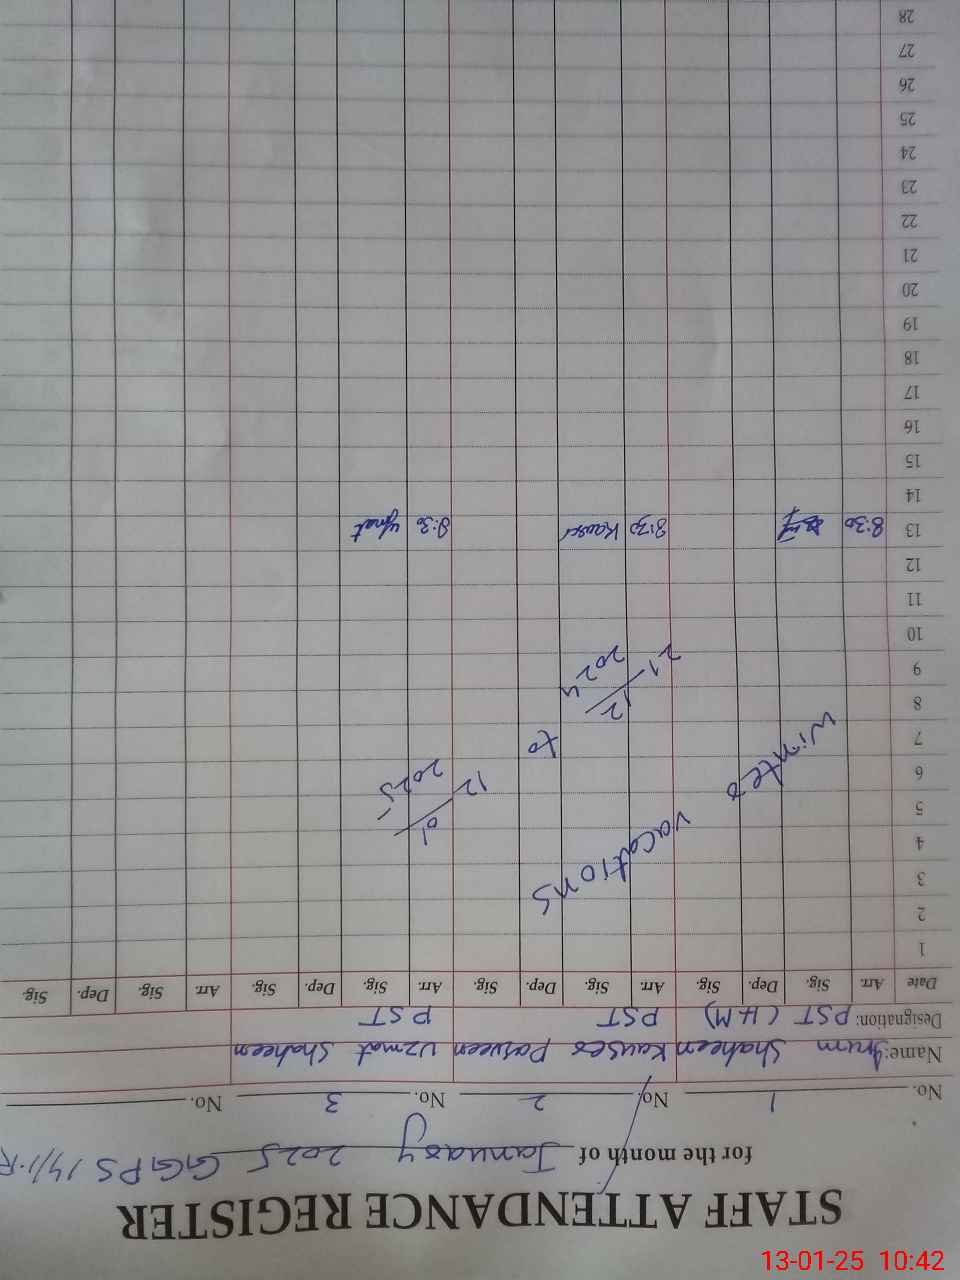 STAFF ATTENDANCE REGISTER
for the month of January 2025 GGPS 14/1-R
No. 1 No. 2 No. 3 No.
Name: Irum Shaheen Kauser Parveen Uzmat Shaheen
Designation: PST (HM) PST PST
Date Arr. Sig. Dep. Sig. Arr. Sig. Dep. Sig. Arr. Sig. Dep. Sig. Arr. Sig. Dep. Sig.
1
2
3
4
5
6
7
8
9
10
11
12
winter vacations
21/12 2024 to 12/01 2025
13 8:30 8:30 Kauser 8:30 Uzmat
14
15
16
17
18
19
20
21
22
23
24
25
26
27
28
13-01-25 10:42